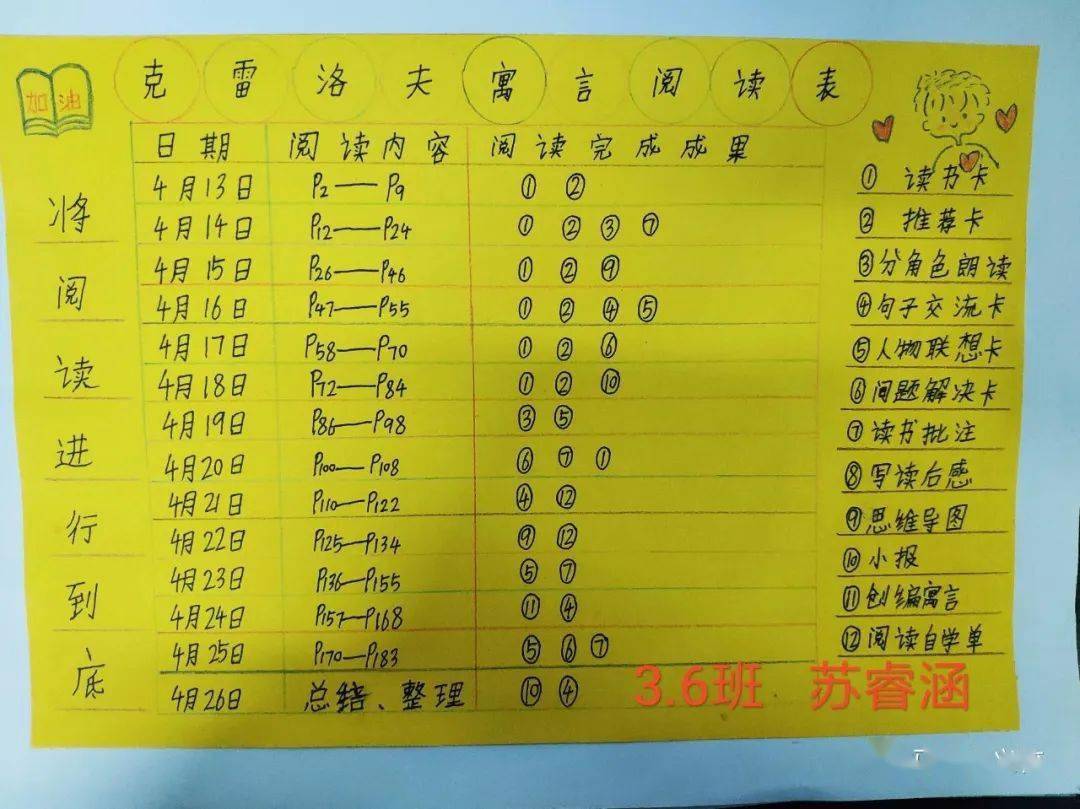 克雷洛夫寓言阅读表
加油
将阅读进行到底
日期 阅读内容 阅读完成成果
4月13日 P2——P9 ① ②
4月14日 P12——P24 ① ② ③ ⑦
4月15日 P26——P46 ① ② ⑨
4月16日 P47——P55 ① ② ④ ⑤
4月17日 P58——P70 ① ② ⑥
4月18日 P72——P84 ① ② ⑩
4月19日 P86——P98 ③ ⑤
4月20日 P100—P108 ⑥ ⑦ ①
4月21日 P110—P122 ④ ⑫
4月22日 P125—P134 ⑨ ⑫
4月23日 P136—P155 ⑤ ⑦
4月24日 P157—P168 ⑪ ④
4月25日 P170—P183 ⑤ ⑥ ⑦
4月26日 总结、整理 ⑩ ④
① 读书卡
② 推荐卡
③分角色朗读
④句子交流卡
⑤人物联想卡
⑥问题解决卡
⑦读书批注
⑧写读后感
⑨思维导图
⑩小报
⑪创编寓言
⑫阅读自学单
3.6班 苏睿涵